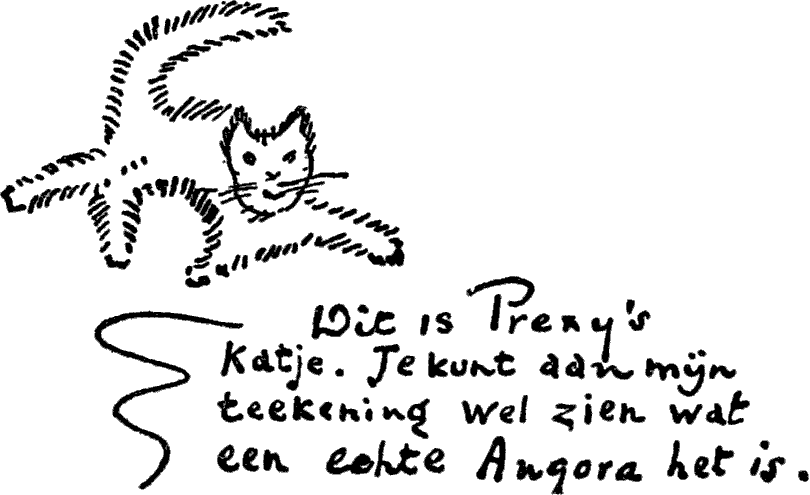 Dit is Prexy's
Katje. Je kunt aan mijn
teekening wel zien wat
een echte Angora het is.